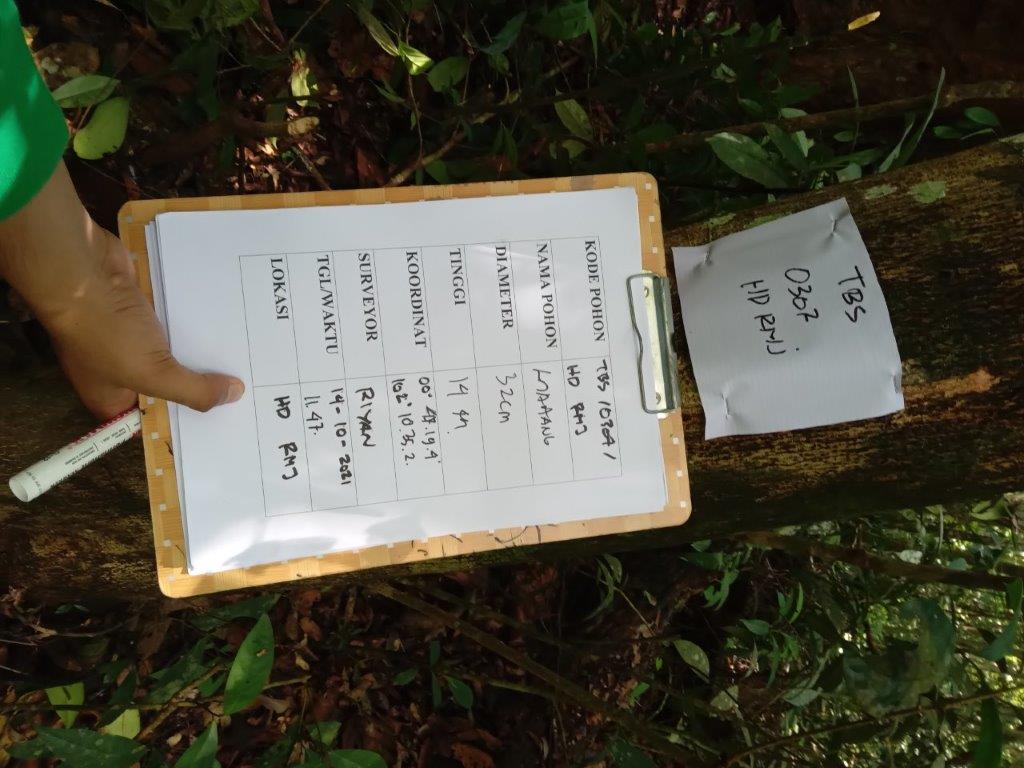 TBS
0307
HD RMJ
KODE POHON TBS / 0307 /
HD RMJ
NAMA POHON
DIAMETER 32cm
TINGGI 14 m
KOORDINAT 00° 47.19.4"
102° 10.35.2.
SURVEYOR RIYAN
TGL/WAKTU 14-10-2021
11.47.
LOKASI HD RMJ